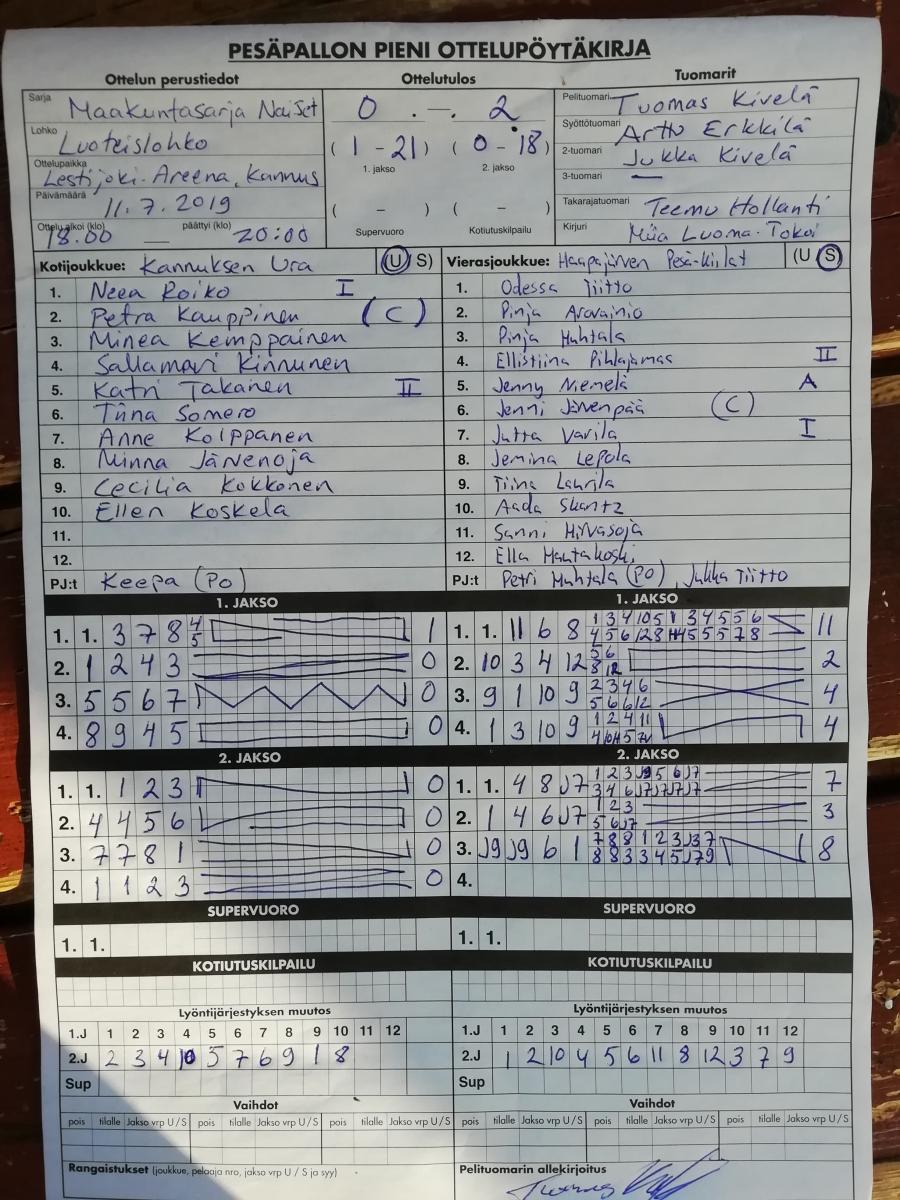 PESÄPALLON PIENI OTTELUPÖYTÄKIRJA
Ottelun perustiedot Ottelutulos Tuomarit
Sarja Maakuntasarja Naiset
Lohko Luoteislohko
Ottelupaikka Lestijoki-Areena, Kannus
Päivämäärä 11.7.2019
Ottelu alkoi (klo) 18.00 — päättyi (klo) 20:00
0 . — . 2
( 1 - 21 ) ( 0 - 18 )
1. jakso 2. jakso
( - ) ( - )
Supervuoro Kotiutuskilpailu
Pelituomari Tuomas Kivelä
Syöttötuomari Arttu Erkkilä
2-tuomari Jukka Kivelä
3-tuomari —
Takarajatuomari Teemu Hollanti
Kirjuri Miia Luoma-Tokoi
Kotijoukkue: Kannuksen Ura (U S)
1. Neea Roiko I
2. Petra Kauppinen (C)
3. Minea Kemppainen
4. Sallamari Kinnunen
5. Katri Takanen II
6. Tiina Somero
7. Anne Kolppanen
8. Minna Järvenoja
9. Cecilia Kokkonen
10. Ellen Koskela
11.
12.
PJ:t Keepa (PO)
Vierasjoukkue: Haapajärven Pesä-Kiilat (U S)
1. Odessa Tiitto
2. Pinja Aravainio
3. Pinja Huhtala
4. Ellistiina Pihlajamaa II
5. Jenny Niemelä A
6. Jenni Järvenpää (C)
7. Jutta Varila I
8. Jemina Lepola
9. Tiina Laurila
10. Aada Skantz
11. Sanni Hirvasoja
12. Ella Hautakoski
PJ:t Petri Huhtala (PO), Jukka Tiitto
1. JAKSO
1. 1. 3 7 8 4 5 1
2. 1 2 4 3 0
3. 5 5 6 7 0
4. 8 9 4 5 0
2. JAKSO
1. 1. 1 2 3 0
2. 4 4 5 6 0
3. 7 7 8 1 0
4. 1 1 2 3 0
SUPERVUORO
1. 1.
KOTIUTUSKILPAILU
1. JAKSO
1. 1. 11 6 8 11
2. 10 3 4 12 2
3. 9 1 10 9 2 3 4 6 4
5 6 6 12
4. 1 3 10 9 1 2 4 11 4
2. JAKSO
1. 1. 4 8 J7 7
2. 1 4 6 J7 1 2 3 3
5 6 J7
3. J9 J9 6 1 8
4.
SUPERVUORO
1. 1.
KOTIUTUSKILPAILU
Lyöntijärjestyksen muutos
1.J 1 2 3 4 5 6 7 8 9 10 11 12
2.J 2 3 4 10 5 7 6 9 1 8
Sup
Vaihdot
pois tilalle Jakso vrp U/S pois tilalle Jakso vrp U/S pois tilalle Jakso vrp U/S
Rangaistukset (joukkue, pelaaja nro, jakso vrp U / S ja syy)
Lyöntijärjestyksen muutos
1.J 1 2 3 4 5 6 7 8 9 10 11 12
2.J 1 2 10 4 5 6 11 8 12 3 7 9
Sup
Vaihdot
pois tilalle Jakso vrp U/S pois tilalle Jakso vrp U/S pois tilalle Jakso vrp U/S
Pelituomarin allekirjoitus